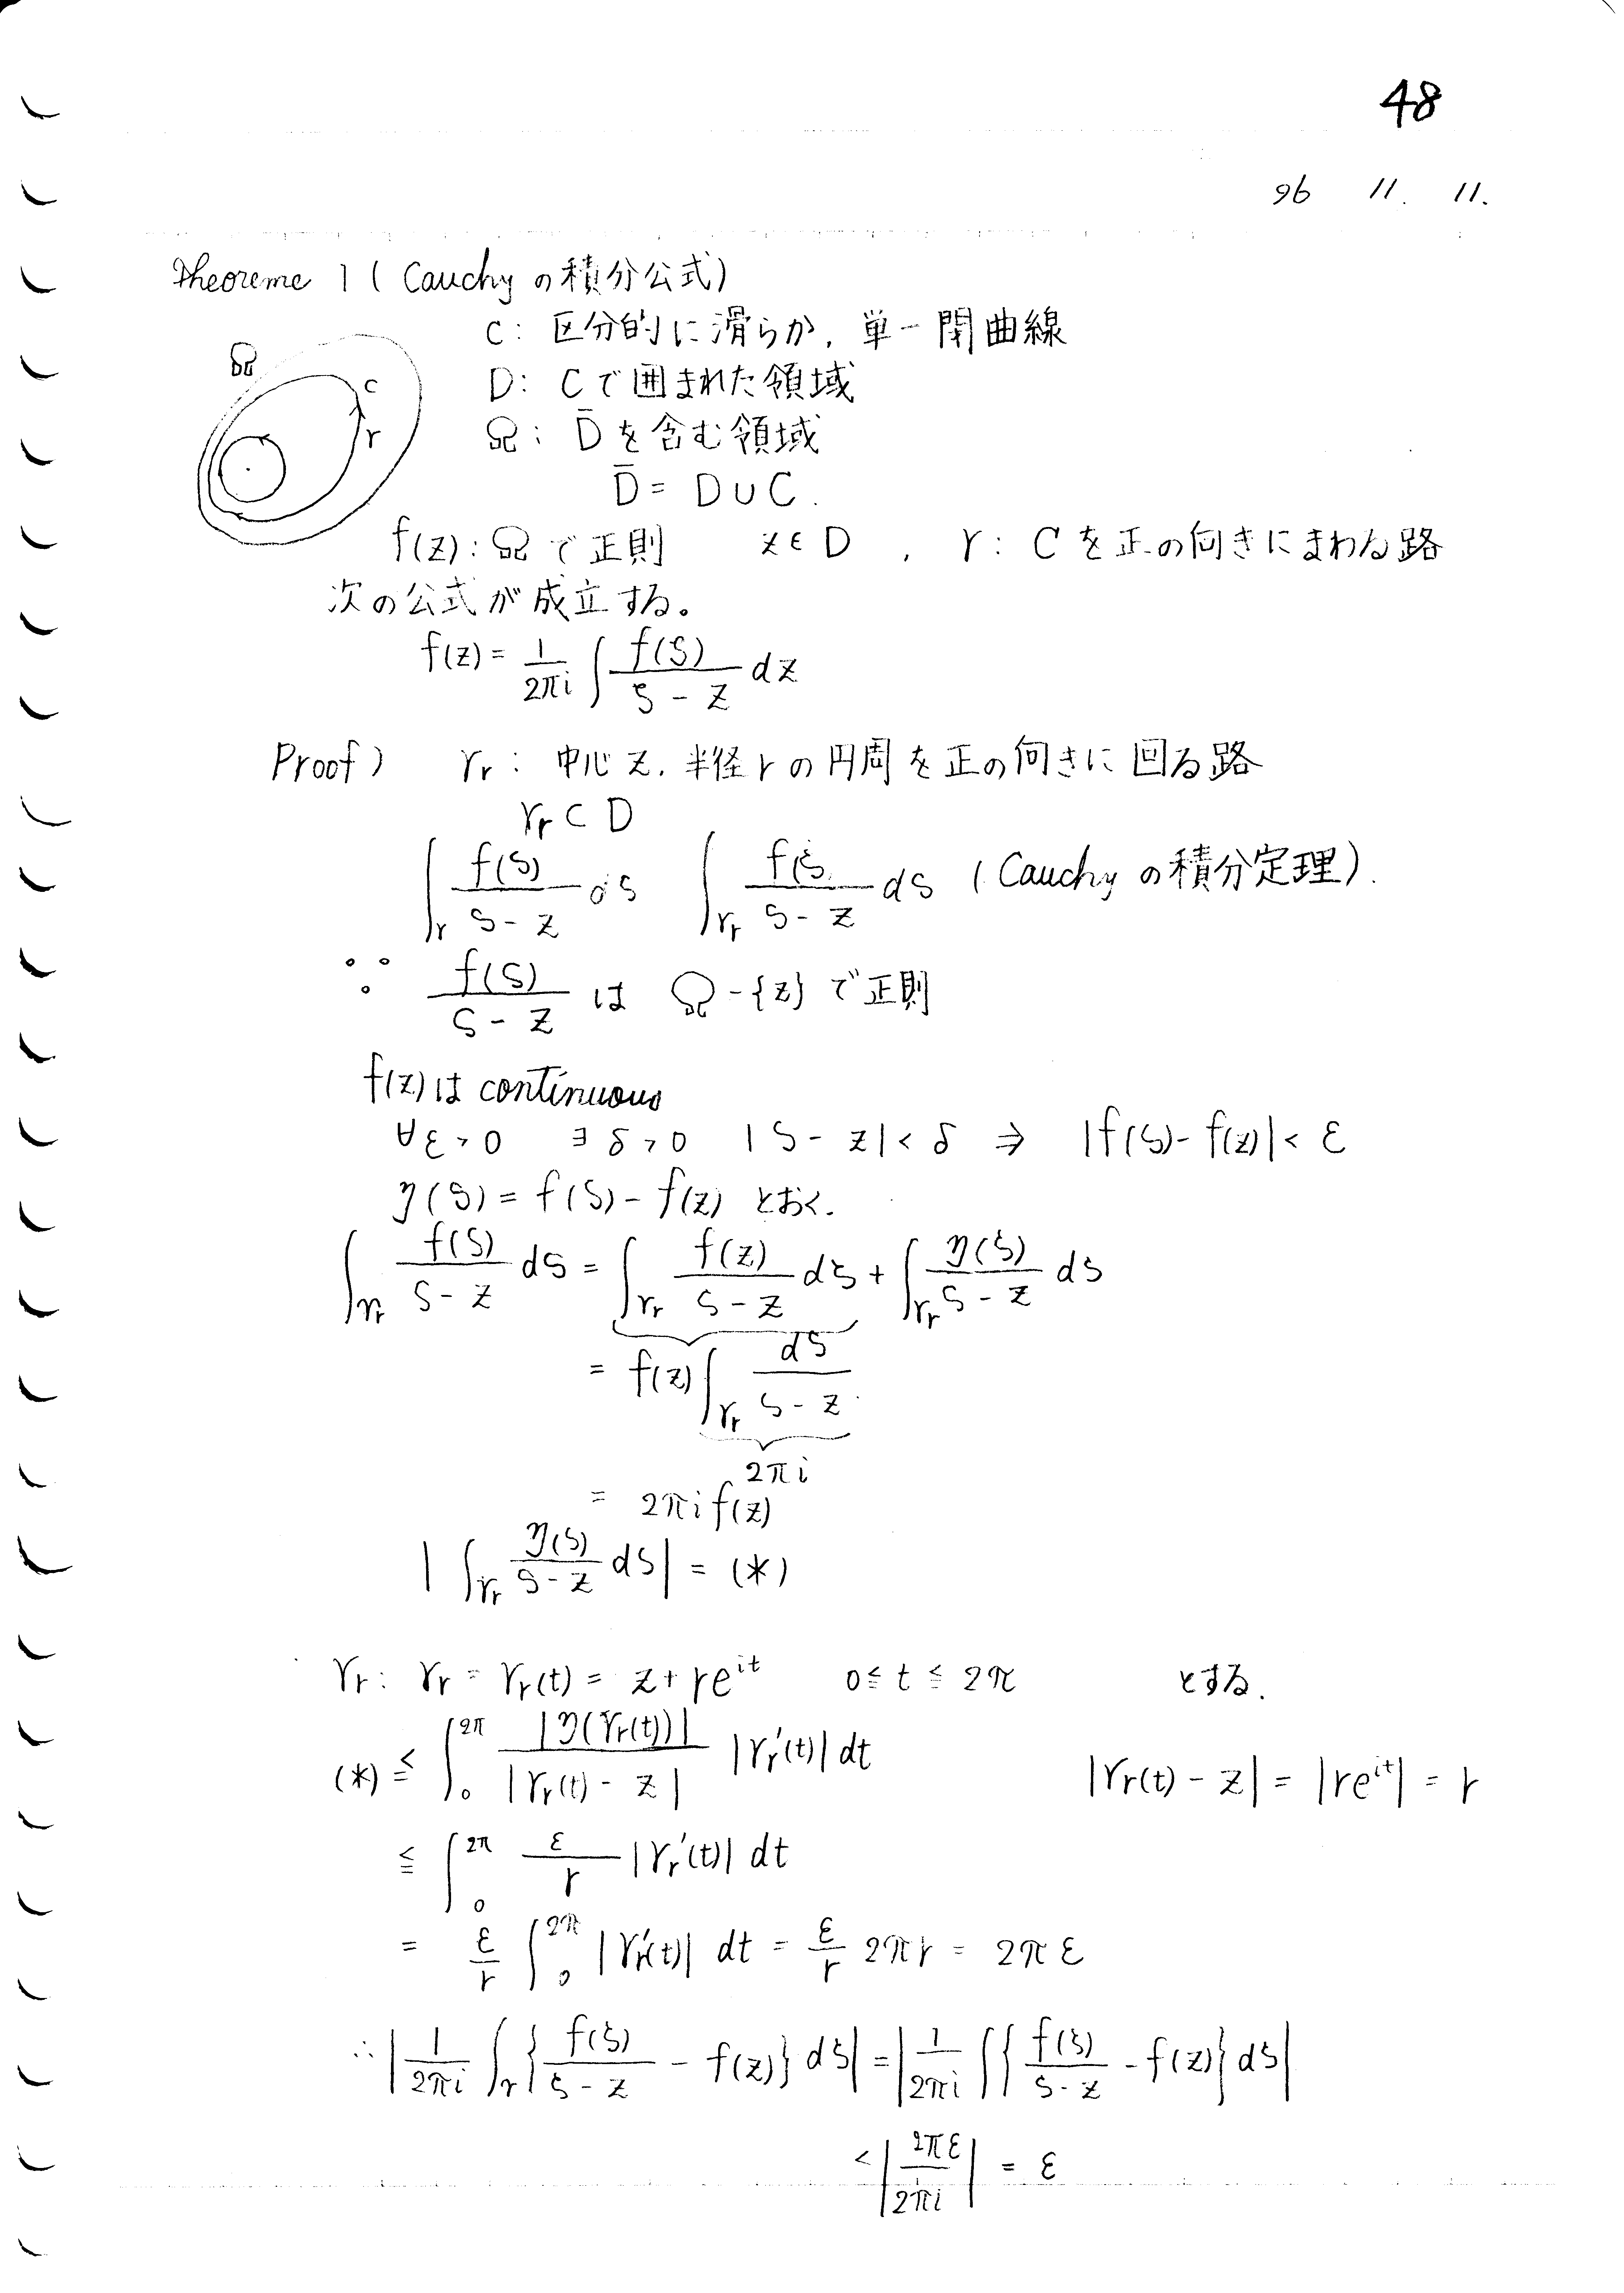 48
96 11. 11.
Theoreme 1 ( Cauchy の積分公式)
C: 区分的に滑らか, 単一閉曲線
Ω
C
γ
D: Cで囲まれた領域
Ω: D̄を含む領域
D̄ = D∪C.
f(z): Ωで正則 z∈D , γ: Cを正の向きにまわる路
次の公式が成立する。
f(z) = 1/2πi ∫ f(ζ)/(ζ-z) dz
Proof) γr: 中心z, 半径rの円周を正の向きに回る路
γr⊂D
∫γ f(ζ)/(ζ-z) dζ ∫γr f(ζ/(ζ-z) dζ (Cauchyの積分定理).
∵ f(ζ)/(ζ-z) は Ω-{z} で正則
f(z)は continuous
∀ε>0 ∃δ>0 |ζ-z|<δ ⇒ |f(ζ)-f(z)|<ε
η(ζ) = f(ζ)-f(z) とおく.
∫γr f(ζ)/(ζ-z) dζ = ∫γr f(z)/(ζ-z) dζ + ∫γr η(ζ)/(ζ-z) dζ
= f(z)∫γr dζ/(ζ-z)
2πi
= 2πi f(z)
|∫γr η(ζ)/(ζ-z) dζ| = (*)
γr: γr = γr(t) = z+re^{it} 0≦t≦2π とする.
(*) ≦ ∫_0^{2π} |η(γr(t))|/|γr(t)-z| |γr'(t)| dt |γr(t)-z| = |re^{it}| = r
≦ ∫_0^{2π} ε/r |γr'(t)| dt
= ε/r ∫_0^{2π} |γr'(t)| dt = ε/r 2πr = 2πε
∴ |1/2πi ∫γ{f(ζ)/(ζ-z) - f(z)} dζ| = |1/2πi ∫{f(ζ)/(ζ-z) - f(z)} dζ|
< |2πε/2πi| = ε